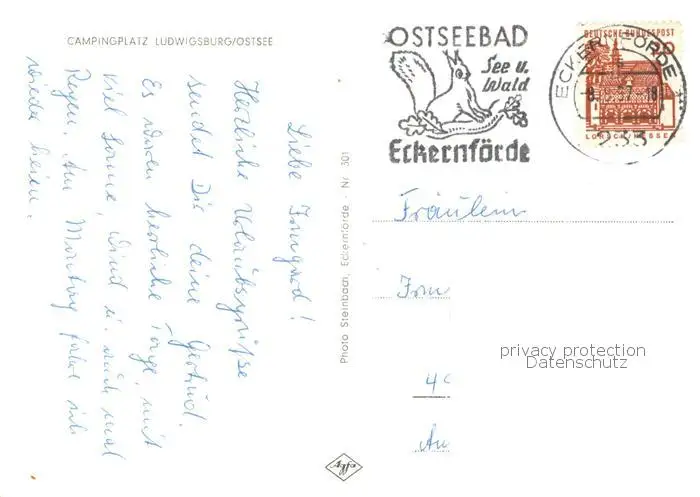 CAMPINGPLATZ LUDWIGSBURG/OSTSEE
Liebe Irmgard!
Herzliche Urlaubsgrüße
sendet Dir deine Gertrud.
Es waren herrliche Tage, mit
viel Sonne, Wind u. auch mal
Regen. Am Montag fahre ich
wieder heim.
Photo Steinbach, Eckernförde · Nr 301
OSTSEEBAD
See u.
Wald
Eckernförde
ECKERNFÖRDE
233
DEUTSCHE BUNDESPOST
20
Fräulein
Irm
privacy protection
Datenschutz